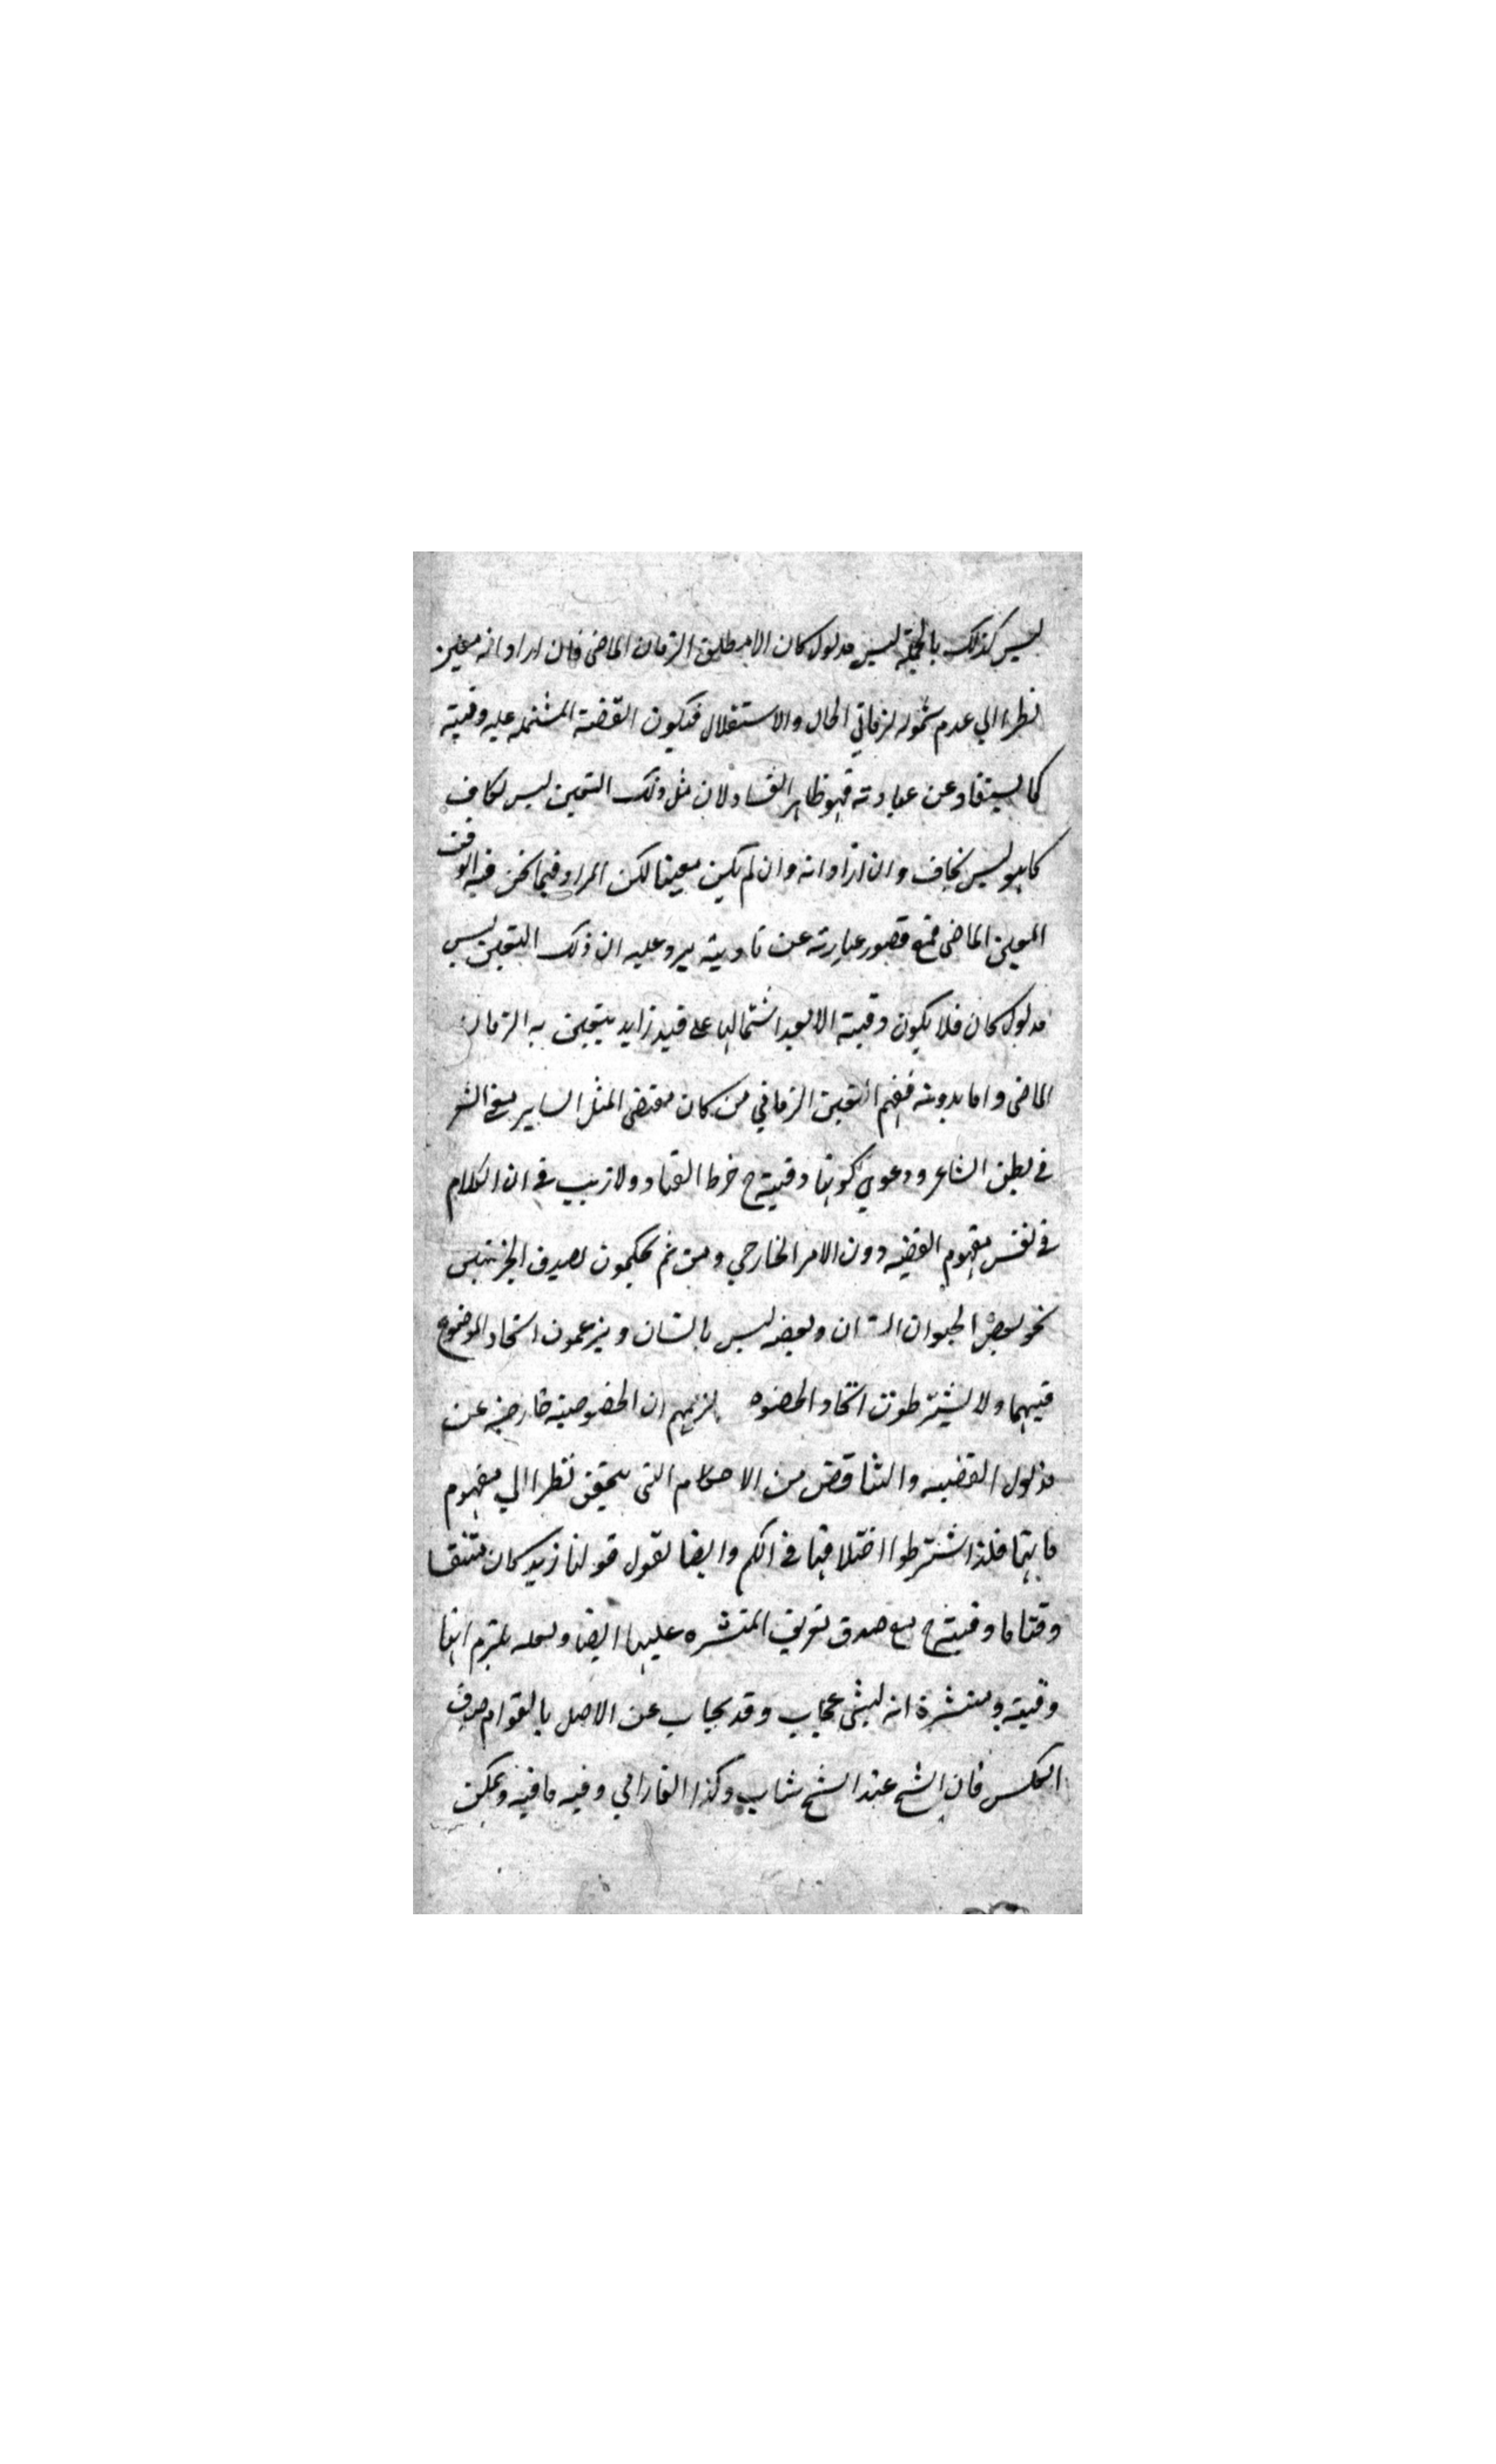 ليس كذلك بالجملة ليس مدلول كان الا مطلق الزمان الماضى فان اراد انه معين
نظرا الي عدم شموله لزماني الحال والاستقلال فتكون القضة المشتمله عليه وقتية
كما يستفاد عن عبارته فهو ظاهر الفساد لان مثل ذلك التعين ليس بكاف
كما هو ليس بخاف وان اراد انه وان لم يكن معينا لكن المراد فيما نحن فيه الوقت
المعين الماضى فمع قصور عبارته عن تاديته يرد عليه ان ذلك التعين ليس
مدلول كان فلا يكون وقتية الا بعد اشتمالها على قيد زايد يتعين به الزمان
الماضى واما بدونه ففهم التعين الزماني من كان مقتضى المثل الساير معنى الشعر
في بطن الشاعر ودعوي كونها وقتية ح خرط القتاد ولا ريب في ان الكلام
في نفس مفهوم القضيه دون الامر الخارجي ومن ثم يحكمون بصدق الجزئيتين
نحو بعض الحيوان انسان وبعضه ليس بانسان ويزعمون اتحاد الموضوع
فيهما ولا يشترطون اتحاد الخصوص لزعمهم ان الخصوصية خارجة عن
مدلول القضيه والتناقض من الاحكام التى يتحقق نظرا الي مفهوم
ماهيتها فلذا اشترطوا اختلافها في الكم وايضا نقول قولنا زيد كان متنفسا
وقتا ما وقتية ح مع صدق تعريف المنتشره عليها ايضا ولعله يلتزم انها
وقتية ومنتشرة انه لشئ عجاب وقد يجاب عن الاصل بالقوام حرف
العكس فان الشيخ عند الشيخ شاب وكذا الفارابي وفيه ما فيه ويمكن